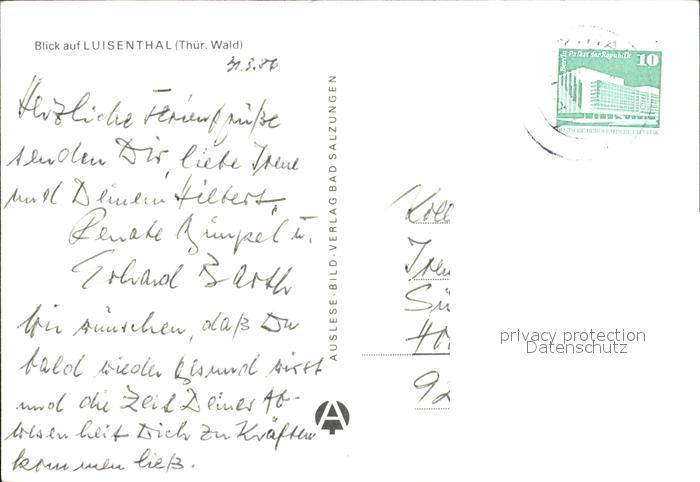 Blick auf LUISENTHAL (Thür. Wald)
31.5.86
Herzliche Feriengrüße
senden Dir, liebe Irene
und Deinem Hilbert,
Renate Gümpel u.
Erhard Barth
Wir wünschen, daß Du
bald wieder gesund wirst
und die Zeit Deiner Ab-
wesenheit Dich zu Kräften
kommen ließ.
AUSLESE-BILD-VERLAG BAD SALZUNGEN
A
Berlin Palast der Republik 10
DEUTSCHE DEMOKRATISCHE REPUBLIK
privacy protection
Datenschutz